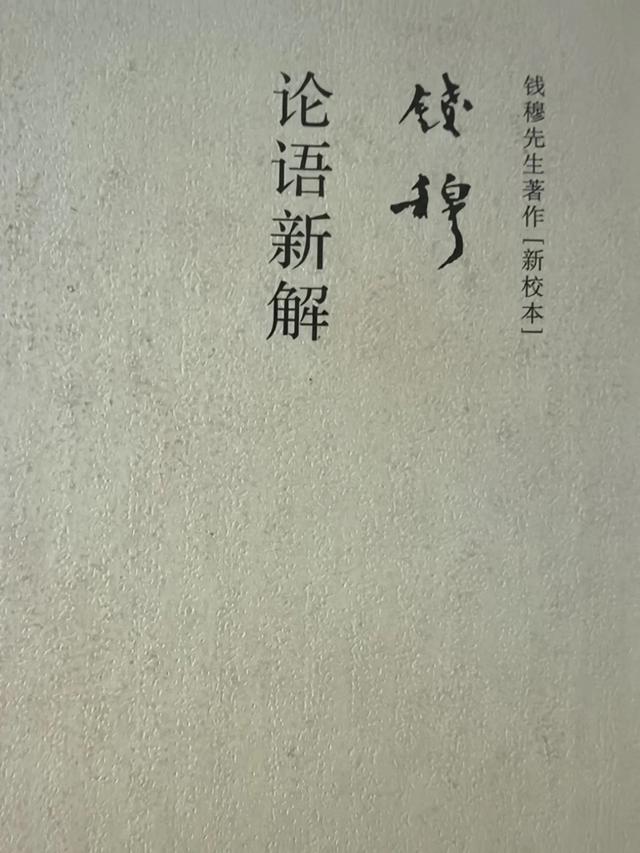 钱穆先生著作［新校本］
錢穆
论语新解